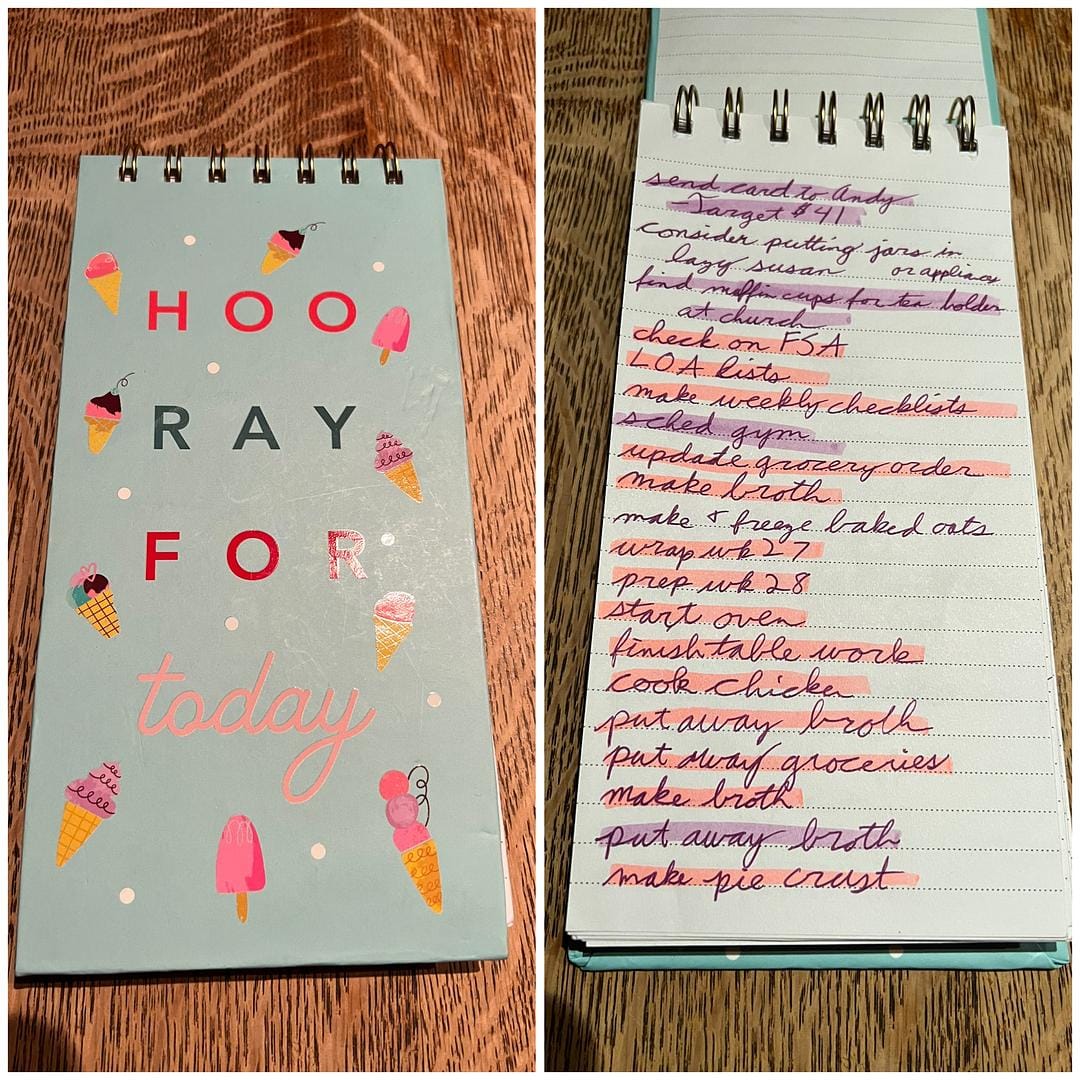 HOO
RAY
FOR
today
send card to Andy
-Target $41
consider putting jars in
lazy susan or appliances
find muffin cups for tea holder
at church
check on FSA
LOA lists
make weekly checklists
sched gym
update grocery order
make broth
make & freeze baked oats
wrap wk 27
prep wk 28
start oven
finish table work
cook chicken
put away broth
put away groceries
make broth
put away broth
make pie crust